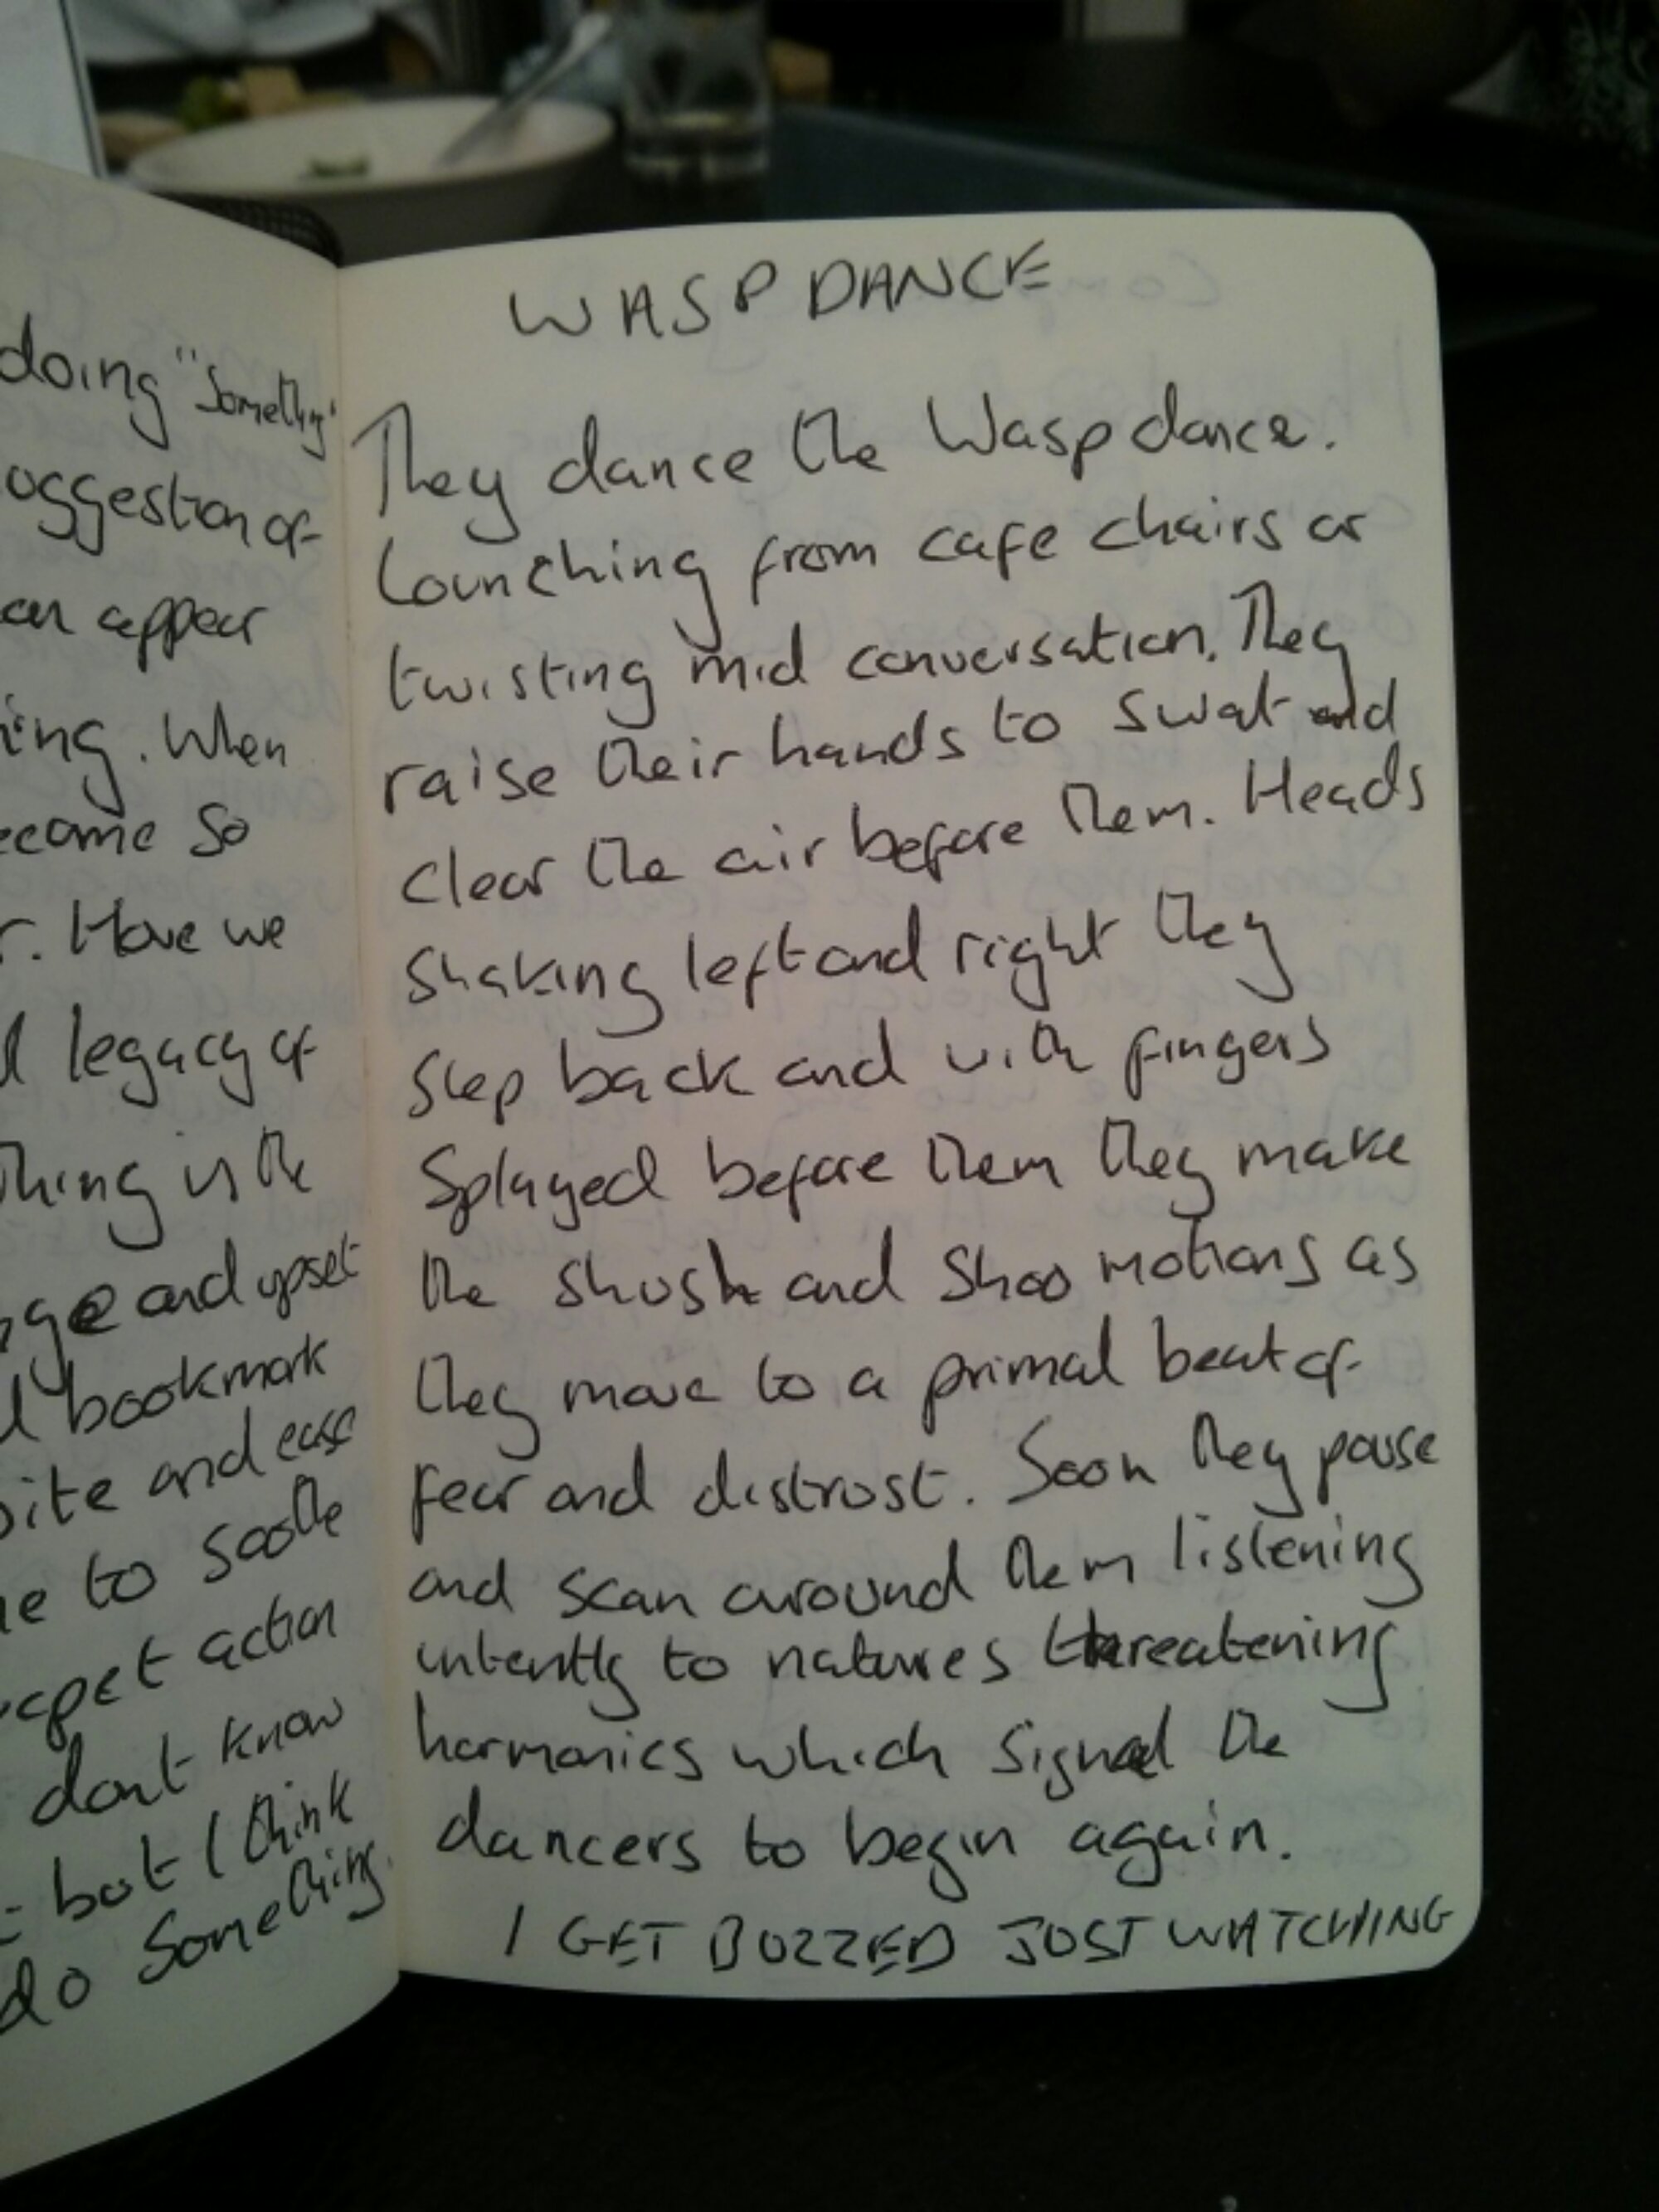 doing "Something"
oggestion of
an appear
ing. When
ecome So
r. Have we
legacy of
thing is the
and upset
bookmark
ite and ease
e to soothe
action
dont know
but I think
do Something.
WASP DANCE
They dance the Wasp dance.
Launching from cafe chairs or
twisting mid conversation. They
raise their hands to swat and
clear the air before them. Heads
Shaking left and right they
Step back and with fingers
Splayed before them they make
the shush and Shoo motions as
they move to a primal beat of
fear and distrust. Soon they pause
and scan around them listening
intently to natures threatening
harmonics which signal the
dancers to begin again.
I GET BUZZED JUST WATCHING